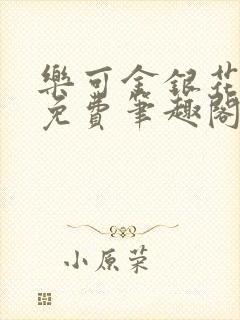 樂可金銀花
免費筆趣閣
小原荣